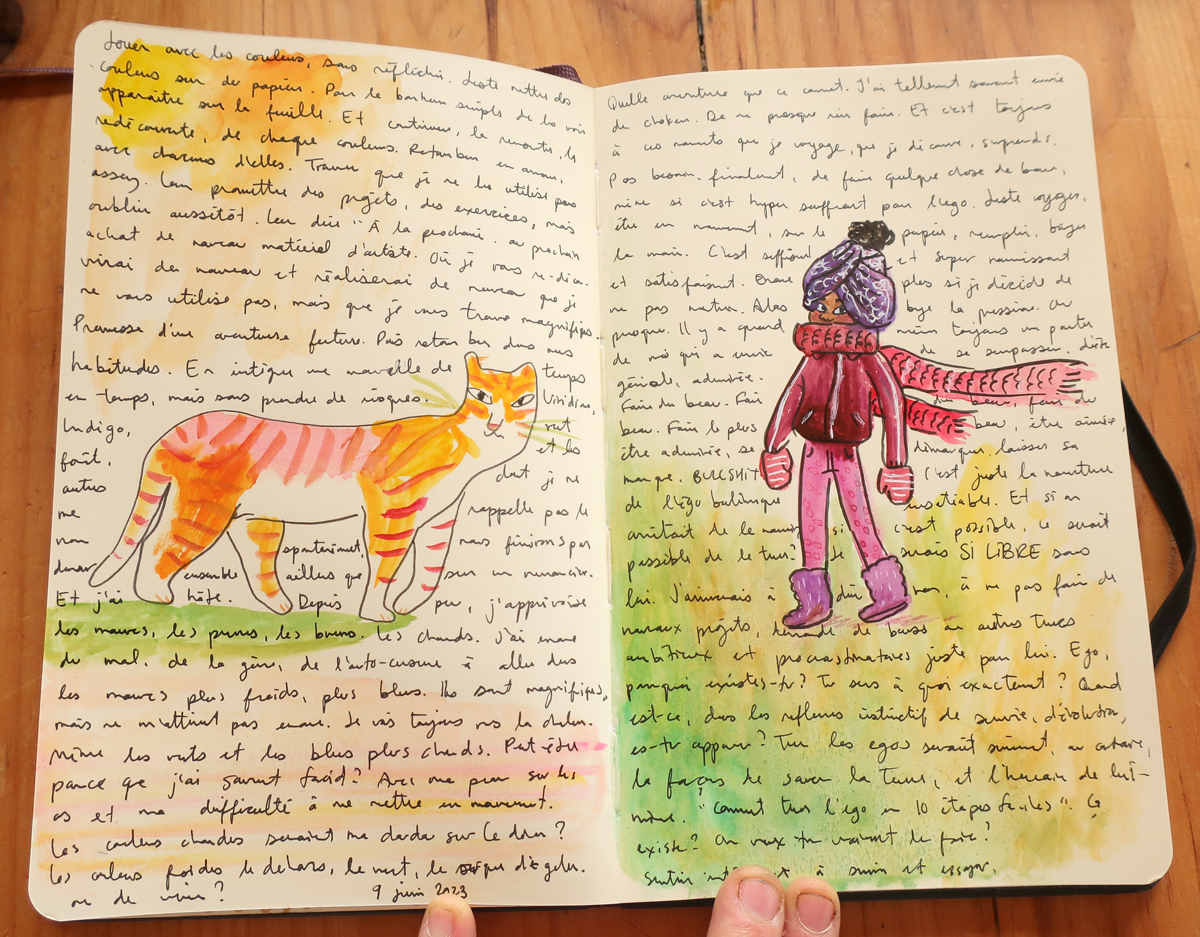 Jouer avec les couleurs, sans réfléchir. Juste mettre des
couleurs sur du papier. Pour le bonheur simple de les voir
apparaître sur la feuille. Et continuer, la remontée, la
redécouverte, de chaque couleurs. Retomber en amour,
avec chacune d'elles. Trouver que je ne les utilise pas
assez. Leur promettre des projets, des exercices, mais
oublier aussitôt. Leur dire "À la prochaine. au prochain
achat de nouveau matériel d'artiste. Où je vous re-dé-ca-
virai de nouveau et réaliserai de nouveau que je
ne vous utilise pas, mais que je vous trouve magnifiques.
Promesse d'une aventure future. Puis retomber dans mes
habitudes. En intégrer une nouvelle de temps
en temps, mais sans prendre de risques. Viridian,
Indigo, vert
foêt, et les
autres dont je ne
me rappelle pas le
nom nous finirons par
spontanément,
ensemble ailleurs que sur un nuancier.
Et j'ai hâte. Depuis peu, j'apprivoise
les mauves, les prunes, les bruns. Les chauds. J'ai encore
du mal, de la gêne, de l'auto-censure à aller dans
les mauves plus froids, plus bleus. Ils sont magnifiques,
mais ne m'attirent pas encore. Je vais toujours vers la chaleur.
Même les verts et les bleus plus chauds. Peut-être
parce que j'ai souvent froid? Avec ma peau sur les
os et ma difficulté à me mettre en mouvement.
Les couleurs chaudes seraient ma doudou sur le dos?
Les couleurs froides le dehors, le vent, le risque d'égeler.
ou de vivre?
9 juin 2023
Quelle aventure que ce carnet. J'ai tellement souvent envie
de choker. De ne presque rien faire. Et c'est toujours
à ces moments que je voyage, que je découvre, surprends.
Pas besoin, finalement, de faire quelque chose de beau,
même si c'est hyper souffrant pour l'ego. Juste voyager,
être en mouvement, sur le papier, remplir, bouger
la main. C'est suffisant et super nourrissant
et satisfaisant. Encore plus si je décide de
ne pas montrer. Alors bye la pression. Ou
presque. Il y a quand même toujours un partie
de moi qui a envie de se surpasser, d'être
géniale, admirée.
Faire du beau. Faire du beau, faire du
beau. Faire le plus beau, être aimée,
être admirée, se démarquer, laisser sa
marque. BULLSHIT C'est juste la nourriture
de l'égo boulimique insatiable. Et si on
arrêtait de le nourrir, si c'est possible, ce serait
possible de le tuer? Je serais SI LIBRE sans
lui. J'arriverais à dire non, à ne pas faire de
nouveaux projets, demande de bourses ou autres trucs
ambitieux et procrastinatoires juste pour lui. Ego,
pourquoi existes-tu? Tu sers à quoi exactement? Quand
est-ce, dans les réflexes instinctif de survie, d'évolution,
es-tu apparu? Tuer les egos serait sûrement, au contraire,
la façon de sauver la Terre, et l'humain de lui-
même. "Comment tuer l'ego en 10 étapes faciles". Ça
existe? On veux-tu vraiment le faire?
à suivre et essayer.